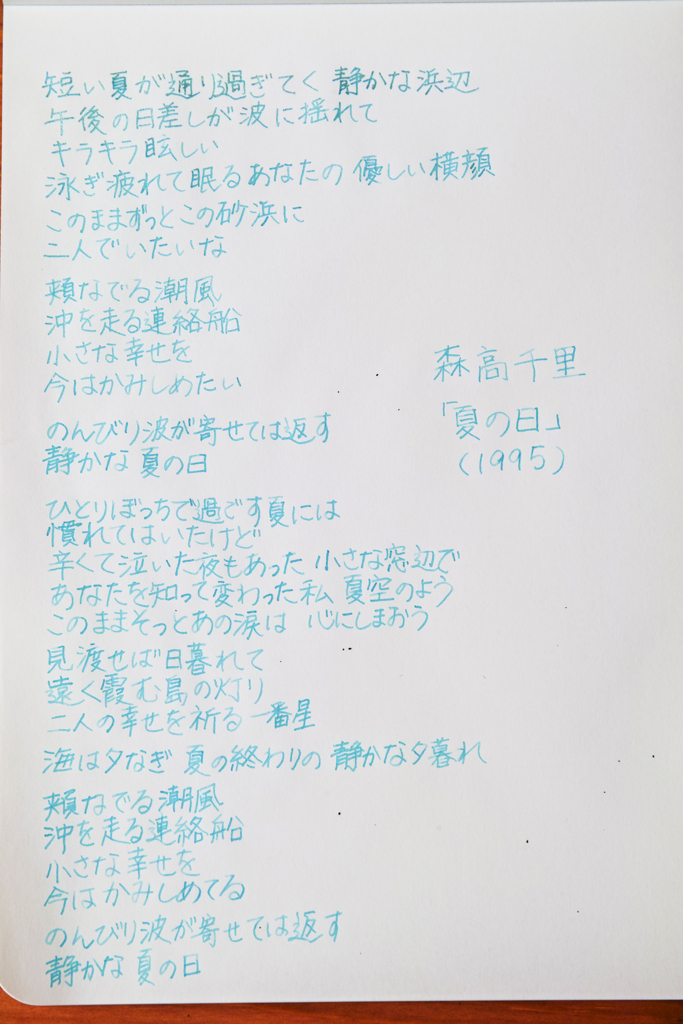 短い夏が通り過ぎてく 静かな浜辺
午後の日差しが波に揺れて
キラキラ眩しい
泳ぎ疲れて眠るあなたの 優しい横顔
このままずっとこの砂浜に
二人でいたいな
頬なでる潮風
沖を走る連絡船
小さな幸せを
今はかみしめたい
のんびり波が寄せては返す
静かな 夏の日
ひとりぼっちで過ごす夏には
慣れてはいたけど
辛くて泣いた夜もあった 小さな窓辺で
あなたを知って変わった私 夏空のよう
このままそっとあの涙は 心にしまおう
見渡せば日暮れて
遠く霞む島の灯り
二人の幸せを祈る 一番星
海は夕なぎ 夏の終わりの 静かな夕暮れ
頬なでる潮風
沖を走る連絡船
小さな幸せを
今はかみしめてる
のんびり波が寄せては返す
静かな 夏の日
森高千里
「夏の日」
(1995)